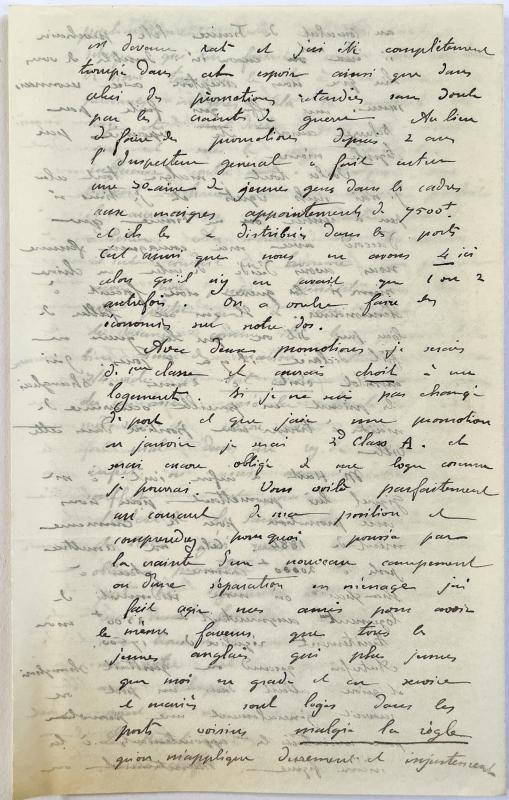 est devenu rat et j'ai été complètement
trompé dans cet espoir ainsi que dans
celui des promotions retardées sans doute
par les craintes de guerre. Au lieu
de faire des promotions depuis 2 ans
l'Inspecteur general a fait entrer
une 30aine de jeunes gens dans les cadres
aux maigres appointements de 7500f.
et ils les a distribués dans les ports
C'est ainsi que nous en avons 4 ici
alors qu'il n'y en avait que 1 ou 2
autrefois. On a voulu faire des
économies sur notre dos.
Avec deux promotions je serais
de 1ère classe et aurais droit à un
logement. Si je ne suis pas changé
de port et que j'aie une promotion
en janvier je serai 2d Class A. et
serai encore obligé de me loger comme
je pourrai. Vous voilà parfaitement
au courant de ma position et
comprendrez pourquoi poussé par
la crainte d'un nouveau campement
ou d'une séparation en ménage j'ai
fait agir mes amis pour avoir
les mêmes faveurs que tous les
jeunes anglais qui plus jeunes
que moi en grade et en service
et mariés sont logés dans les
ports voisins malgré la règle
qu'on m'applique durement et injustement